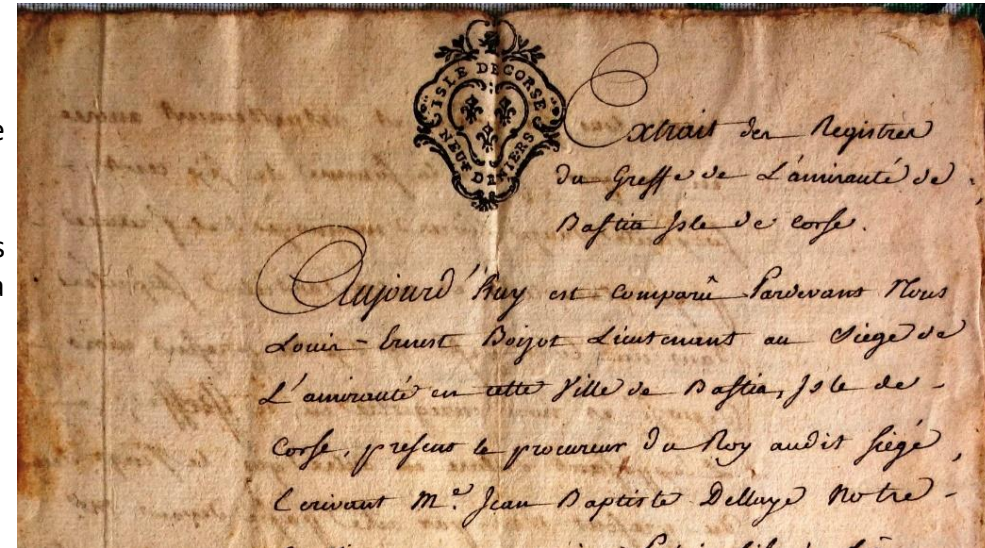 ISLE DE CORSE
NEUF DENIERS
Extrait des Registres
du Greffe de L'amirauté de
Bastia Isle de Corse.
Aujourd'huy est comparû Pardevant Nous
Louis-Ernest Boizot Lieutenant au Siege de
L'amirauté en cette Ville de Bastia, Isle de
Corse, present le procureur du Roy audit siége,
Ecrivant Me. Jean Baptiste Dellaye Notre